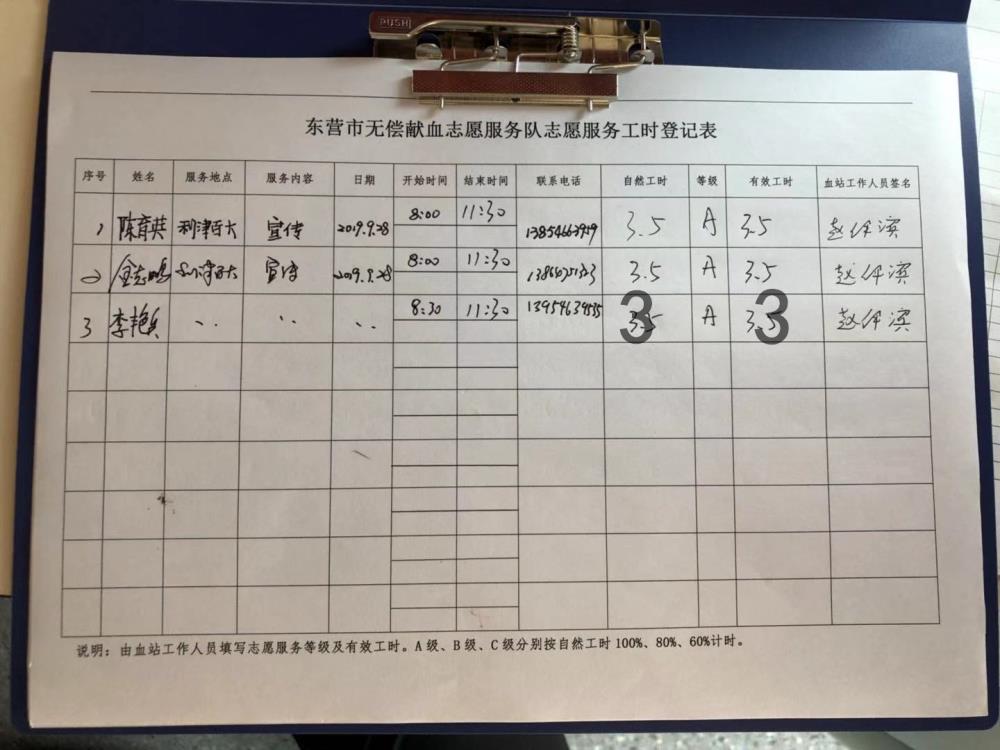 PUSH
东营市无偿献血志愿服务队志愿服务工时登记表
序号 姓名 服务地点 服务内容 日期 开始时间 结束时间 联系电话 自然工时 等级 有效工时 血站工作人员签名
1 陈育英 利津百大 宣传 2019.9.28 8:00 11:30 3.5 A 3.5
2 金志鸣 利津百大 宣传 2019.9.28 8:00 11:30 3.5 A 3.5
3 李艳 〃 〃 〃 8:30 11:30 13954634535 3 A 3
说明：由血站工作人员填写志愿服务等级及有效工时。A 级、B 级、C 级分别按自然工时 100%、80%、60%计时。